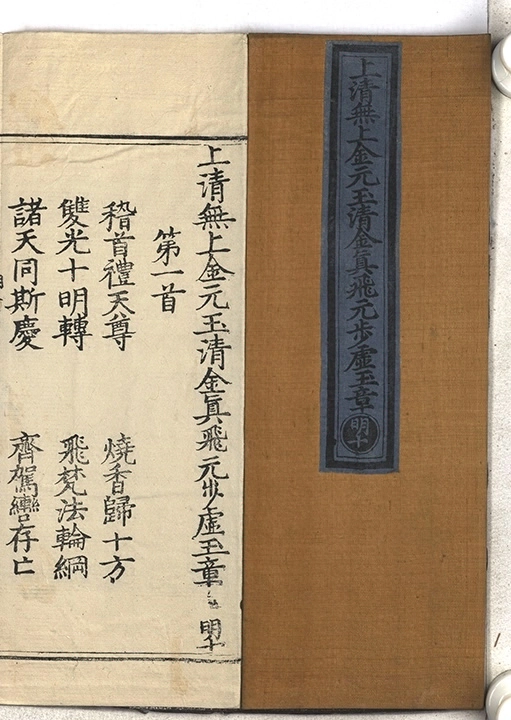 上清無上金元玉清金真飛元步虛玉章
明十
上清無上金元玉清金真飛元步虛玉章 明十
第一首
稽首禮天尊 燒香歸十方
雙光十明轉 飛梵法輪綱
諸天同斯慶 齊駕轡存亡